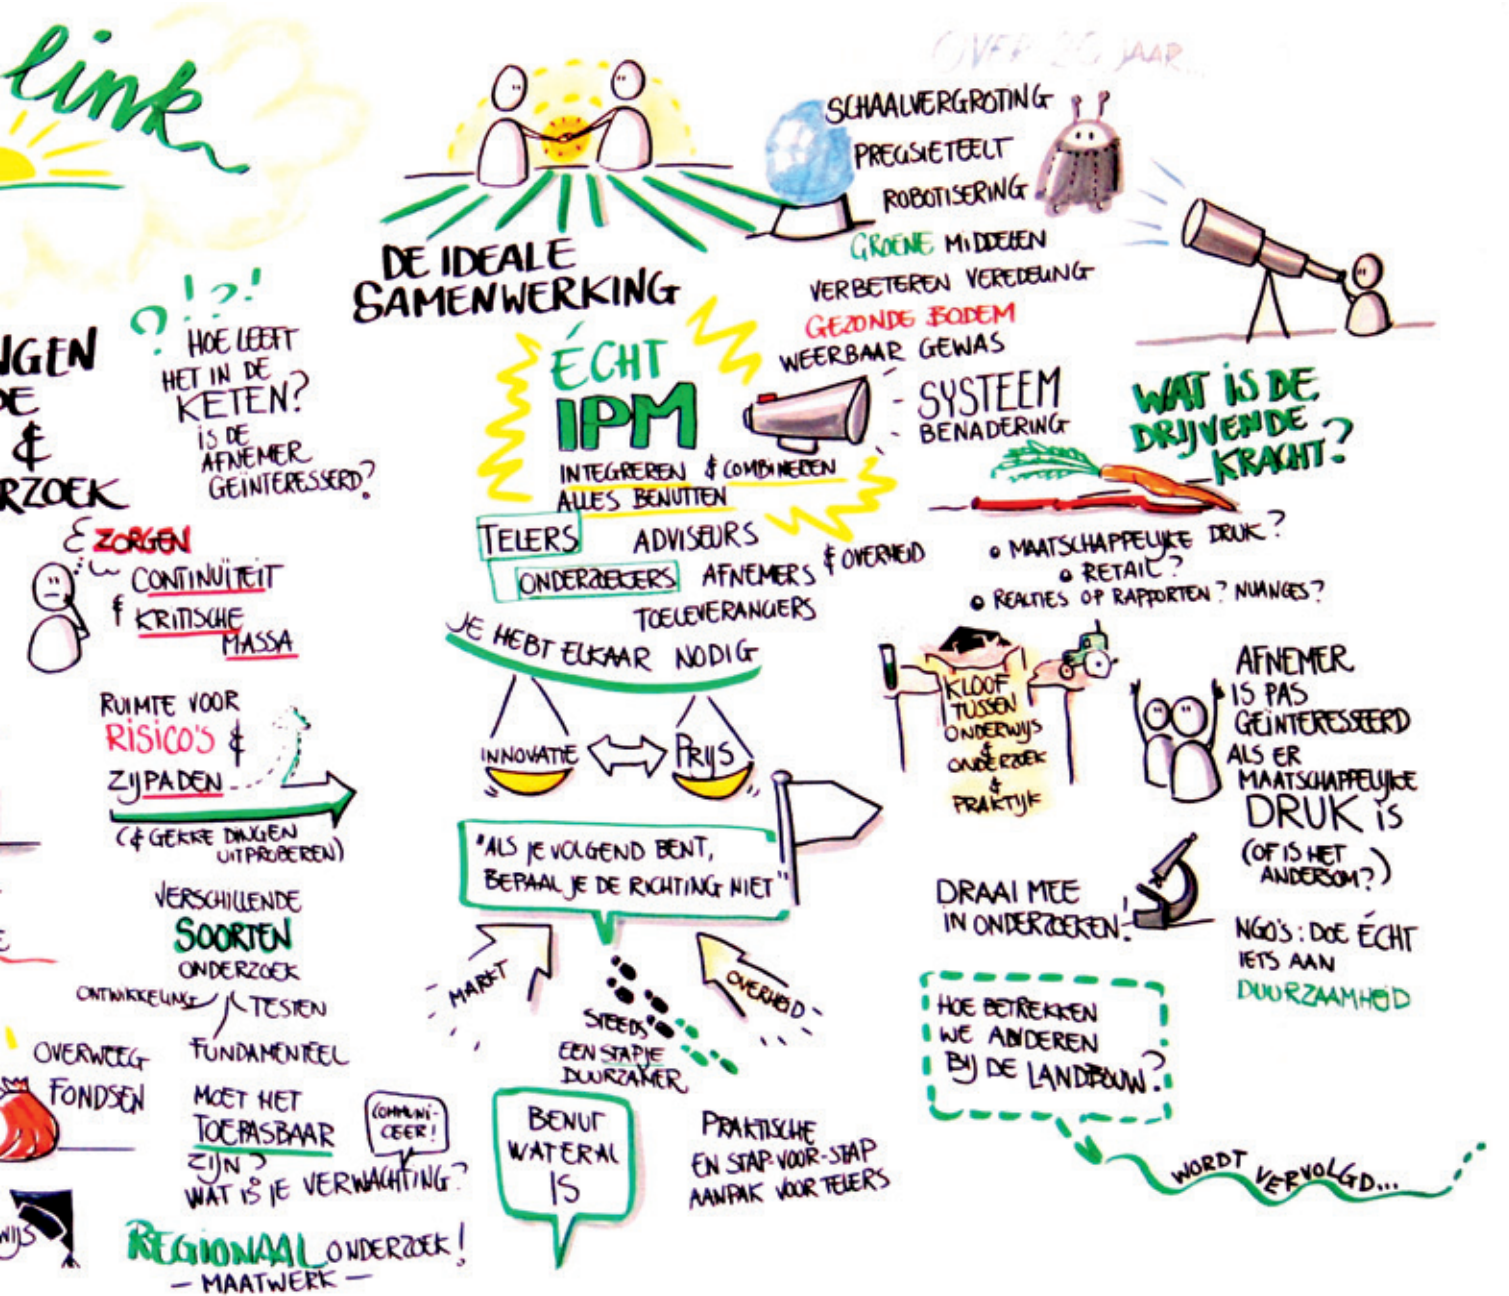 link
NGEN
DE
&
RZOEK
? ! ? !
HOE LEEFT
HET IN DE
KETEN?
IS DE
AFNEMER
GEÏNTERESSERD?
& ZORGEN
CONTINUÏTEIT
& KRITISCHE
MASSA
RUIMTE VOOR
RISICO'S &
ZIJPADEN
(& GEKKE DINGEN
UITPROBEREN)
VERSCHILLENDE
SOORTEN
ONDERZOEK
ONTWIKKELING
TESTEN
FUNDAMENTEEL
OVERWEEG
FONDSEN
MOET HET
TOEPASBAAR
ZIJN?
WAT IS JE VERWACHTING?
COMMUNI-
CEER!
WIJS
REGIONAAL ONDERZOEK!
- MAATWERK -
DE IDEALE
SAMENWERKING
ÉCHT
IPM
INTEGREREN & COMBINEREN
ALLES BENUTTEN
TELERS
ADVISEURS
ONDERZOEKERS
AFNEMERS
& OVERHEID
TOELEVERANCIERS
JE HEBT ELKAAR NODIG
INNOVATIE
PRIJS
"ALS JE VOLGEND BENT,
BEPAAL JE DE RICHTING NIET"
MARKT
OVERHEID
STEEDS
EEN STAPJE
DUURZAMER
BENUT
WAT ER AL
IS
PRAKTISCHE
EN STAP-VOOR-STAP
AANPAK VOOR TELERS
OVER 20 JAAR...
SCHAALVERGROTING
PRECISIETEELT
ROBOTISERING
GROENE MIDDELEN
VERBETEREN VEREDELING
GEZONDE BODEM
WEERBAAR GEWAS
SYSTEEM
BENADERING
WAT IS DE
DRIJVENDE
KRACHT?
• MAATSCHAPPELIJKE DRUK?
• RETAIL?
• REACTIES OP RAPPORTEN? NUANCES?
KLOOF
TUSSEN
ONDERWIJS
&
ONDERZOEK
&
PRAKTIJK
AFNEMER
IS PAS
GEÏNTERESSEERD
ALS ER
MAATSCHAPPELIJKE
DRUK IS
(OF IS HET
ANDERSOM?)
DRAAI MEE
IN ONDERZOEKEN!
NGO'S: DOE ÉCHT
IETS AAN
DUURZAAMHEID
HOE BETREKKEN
WE ANDEREN
BIJ DE LANDBOUW?
WORDT VERVOLGD...